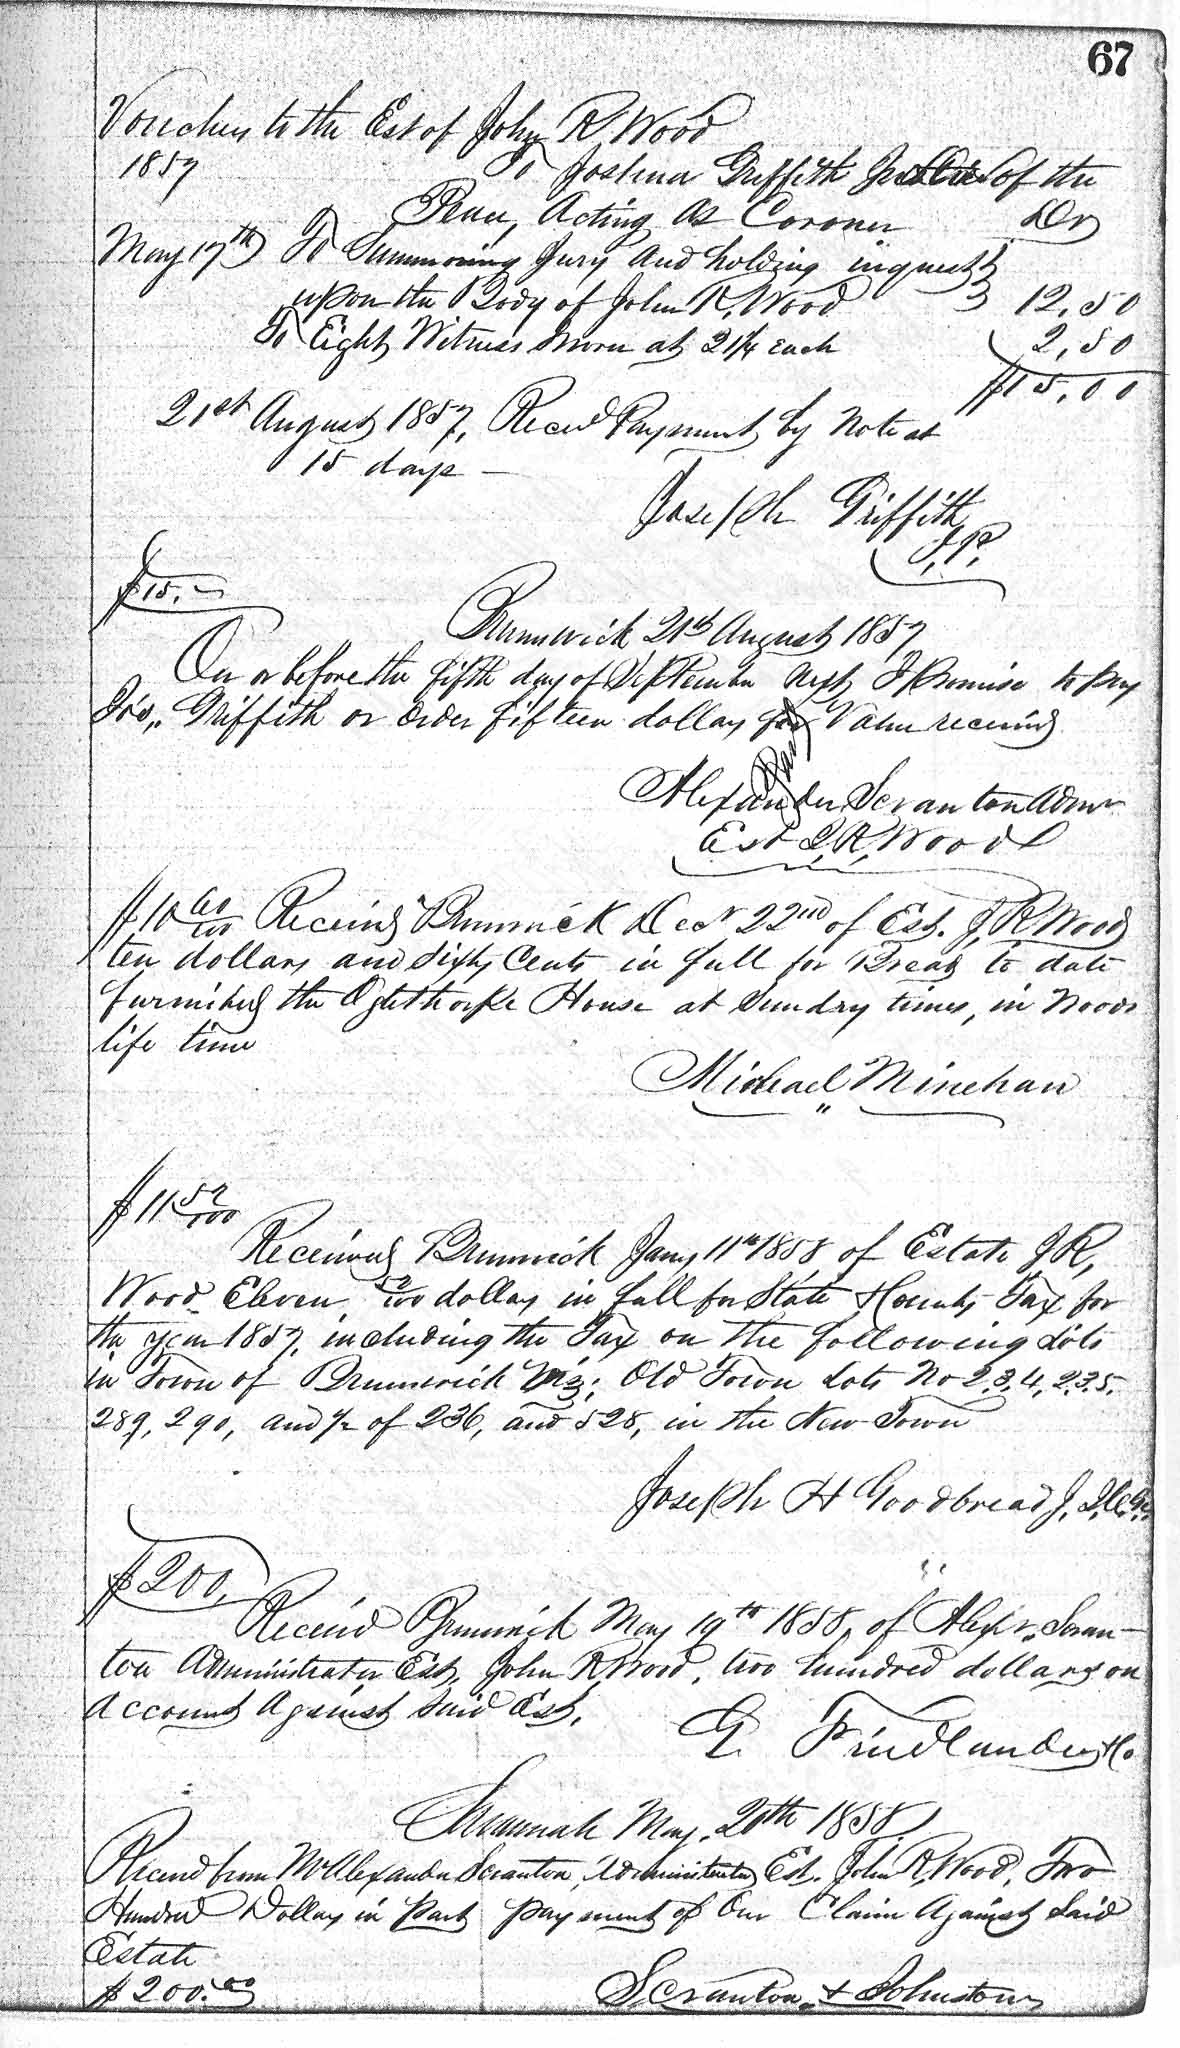 67
Vouchers to the Est of John R Wood
1857
To Joshua Griffith Justice of the
Peace, Acting As Coroner Dr
May 17th To Summoning Jury and holding inquest
upon the Body of John R. Wood 12,50
To Eight Witness Sworn at 31¼ each 2,50
$15,00
21st August 1857, Recevd Payment by Note at
15 days —
Joseph Griffith
J.P.
$15.
Brunswick 21st August 1857
On or before the fifth day of September next I promise to pay
Jos,, Griffith or order fifteen dollars for Value received
Paid
Alexander Scranton Admr
Est J,R, Wood
$10 60/100 Received Brunswick Decr 22nd of Est. J, R Wood
ten dollars and Sixty Cents in full for Bread to date
furnished the Oglethorpe House at Sundry times, in Woods
life time
Michael Minehan
$11 52/100
Received Brunswick Jany 11th 1858, of Estate J R,
Wood Eleven 52/100 dollars in full for State & County Tax for
the year 1857, including the Tax on the following Lots
in Town of Brunswick Viz; Old Town Lots No 2.3.4, 2.3.5.
289, 290, and ½ of 236, and 528, in the New Town
Joseph H Goodbread J,
$200,
Receivd Brunswick May 19th 1858, of Alexr,, Scran-
ton Administrator Est, John R Wood, two hundred dollars on
account Against Said Est,
G. Friedlander & Co
Savannah May. 20th 1858
Receivd from Mr Alexander Scranton, Administrator Est. John R, Wood, Two
Hundred Dollars in Part payment of Our Claim Against Said
Estate
$200.00 Scranton & Johnston